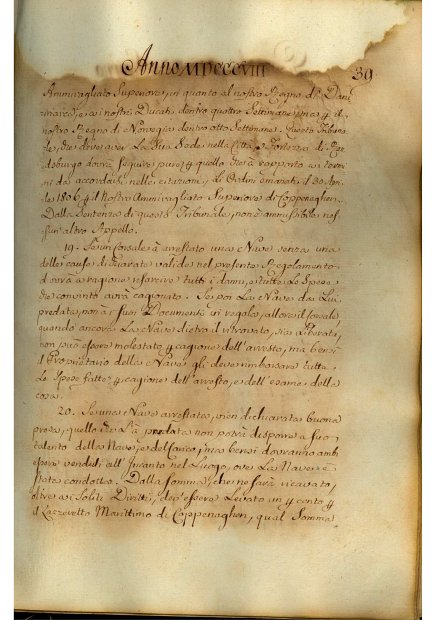 Anno MDCCCVIII 39
Ammiragliato Superiore, in quanto al nostro Regno di Dani
marca, e ai nostri Ducati, dentro quattro Settimane, ma q il
nostro Regno di Norvegia dentro otto Settimane. Questo Tribuna
le, che deve aver La Sua Sede nella Città, e Fortezza di
dovrà seguire pure q quello che à rapporto ai termi
ni da accordarsi nelle citazioni, gli Ordini emanati il 30 Apri
le 1806 q il Nostro Ammiragliato Superiore di Coppenaghen.
Dalla Sentenza di questo Tribunale, non è ammissibile nes
sun' altro Appello.
19. Se un Corsale à arrestato una Nave senza una
delle cause dichiarate valide nel presente Regolamento
dovrà a ragione risarcire tutti i danni, e tutte le Spese
che convinto avrà cagionato. Se poi La Nave da Lui
predata, non à i suoi Documenti in regola, allora il Corsale,
quando ancora La Nave dietro il ritrovato, sia Liberata,
non può essere molestato q cagione dell' arresto, ma bensì
il Proprietario della Nave gli deve rimborsare tutte
Le Spese fatte q cagione dell' arresto, e dell' esame della
cosa.
20. Se una Nave arrestata, vien dichiarata buona
presa, quello che L'à predata non potrà disporre a suo
talento della Nave, e del Carico, ma bensì dovranno amb
essere venduti all' Incanto nel Luogo, ove La Nave è
stata condotta. Dalla Somma, che ne sarà ricavata,
oltre ai Soliti Diritti, dev' essere Levato un q cento q
il Lazzeretto Marittimo di Coppenaghen, qual Somma